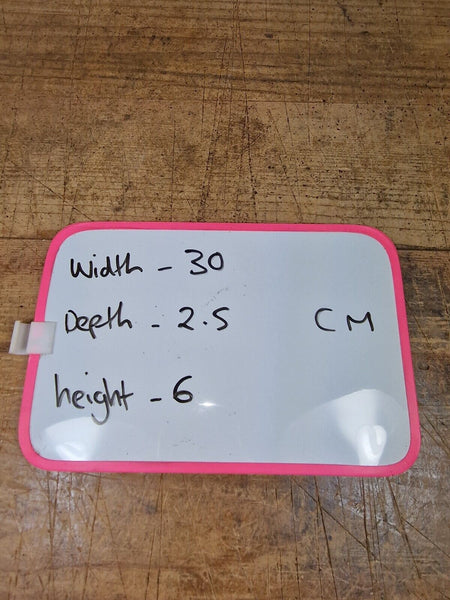 Width - 30
Depth - 2.5 CM
height - 6